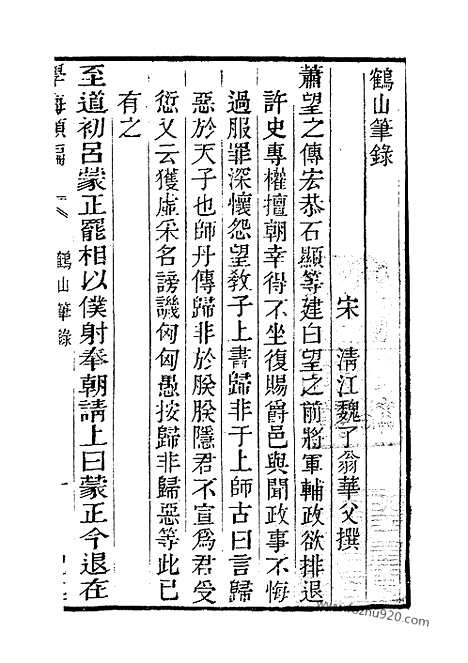 鶴山筆錄
宋　清江魏了翁華父撰
蕭望之傳宏恭石顯等建白望之前將軍輔政欲排退
許史專權擅朝幸得不坐復賜爵邑與聞政事不悔
過服罪深懷怨望教子上書歸非于上師古曰言歸
惡於天子也師丹傳歸非於朕朕隱君不宣為君受
愆又云獲虛采名謗譏匈匈愚按歸非歸惡等此已
有之
至道初呂蒙正罷相以僕射奉朝請上曰蒙正今退在
學海類編
鶴山筆錄
一
www.fozhu920.com